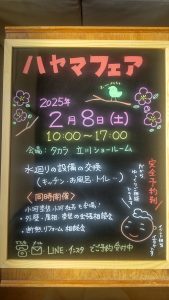 ハヤマフェア
2025年
2月8日(土)
10:00〜17:00
会場：タカラ 立川ショールーム
水廻りの設備の交換
(キッチン・お風呂・トイレ…)
《同時開催》
・外壁・屋根・窓の出張相談会
・断熱リフォーム相談会
LINE・インスタ でご予約受付中
完全予約制